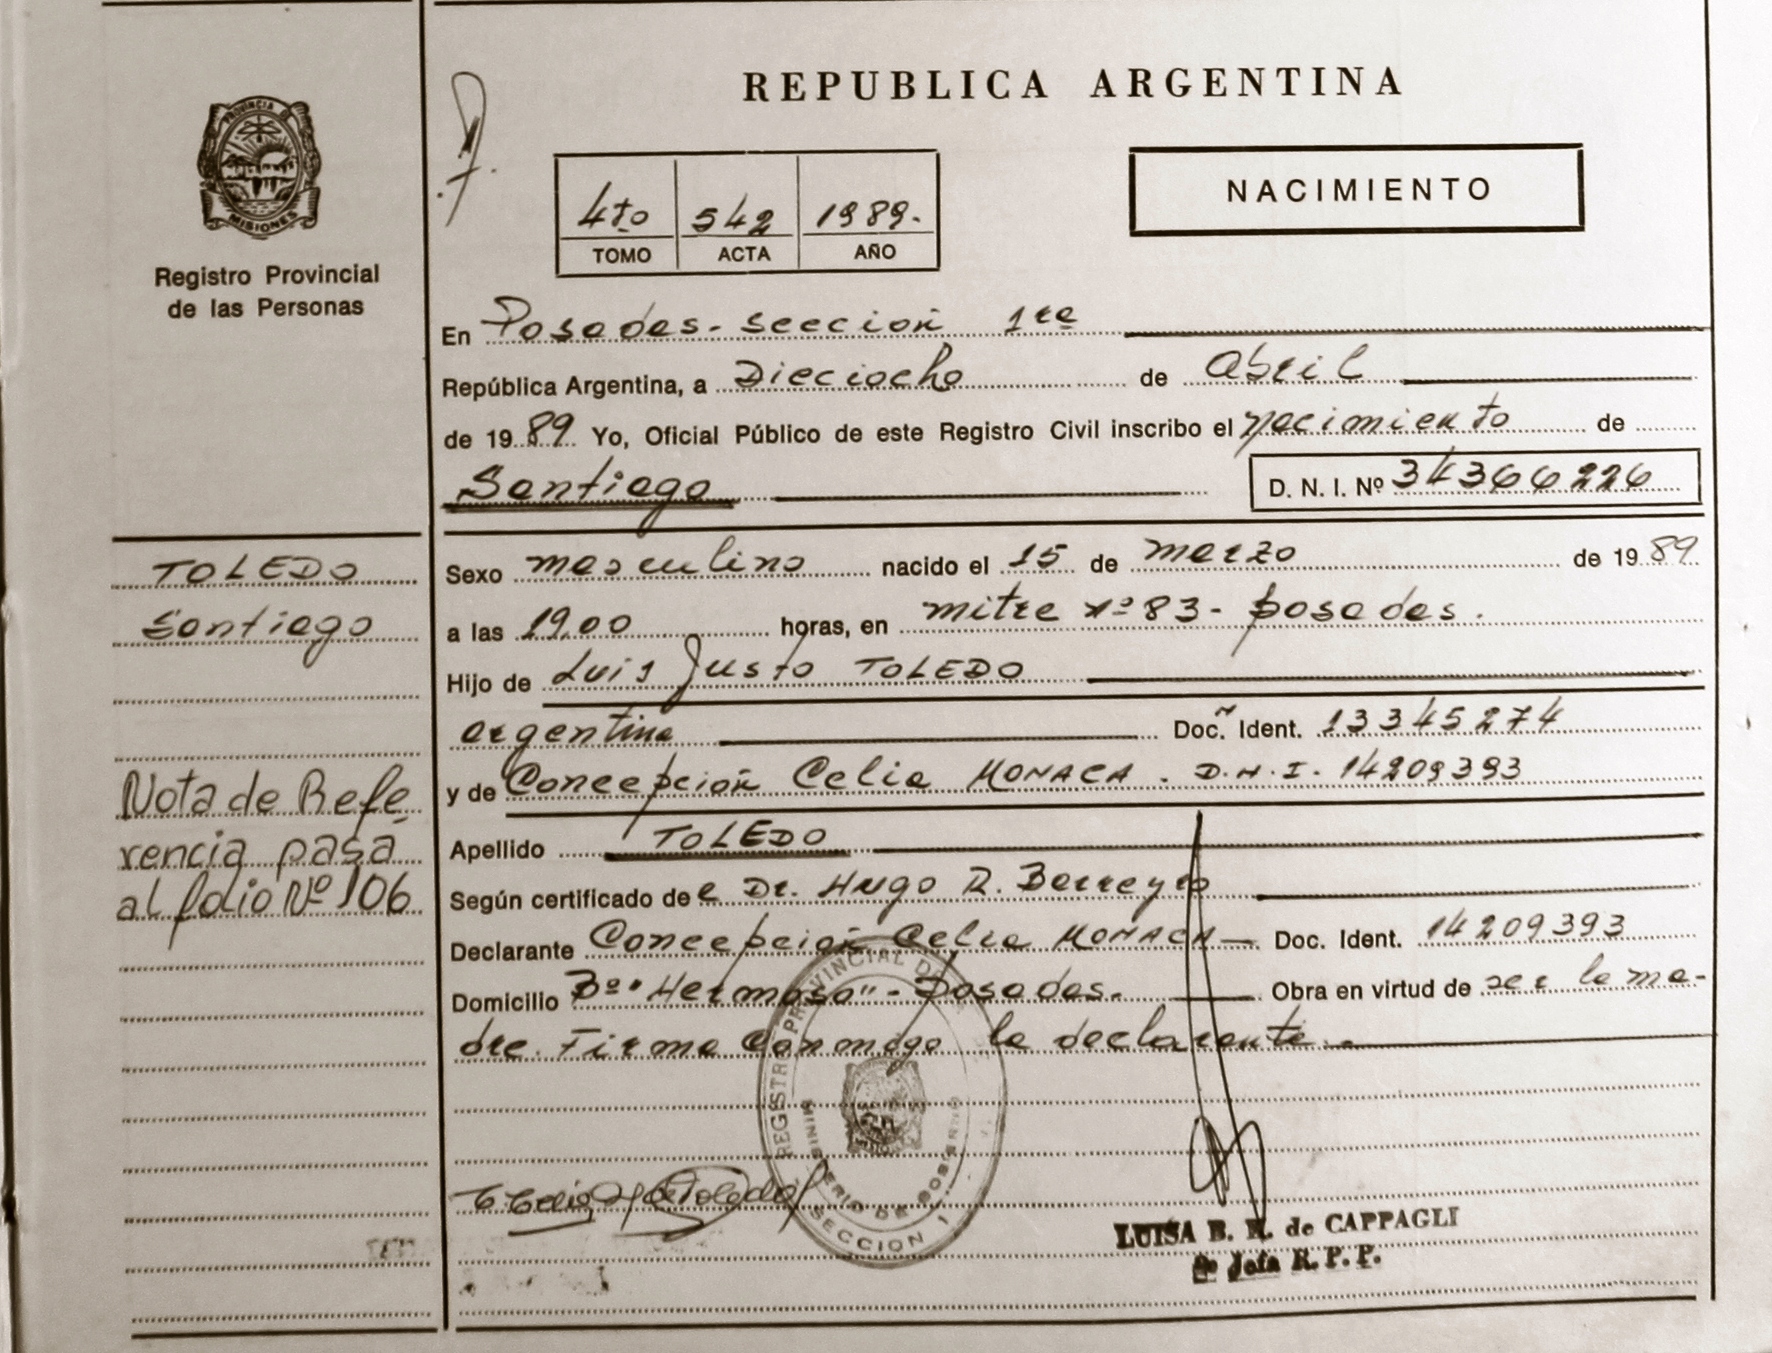 PROVINCIA DE
MISIONES
Registro Provincial
de las Personas
TOLEDO
Santiago
Nota de Refe-
rencia pasa
al folio Nº 106
REPUBLICA ARGENTINA
4to 542 1989.
TOMO ACTA AÑO
NACIMIENTO
En Posadas- sección 1ra
República Argentina, a Dieciocho de abril
de 1989 Yo, Oficial Público de este Registro Civil inscribo el nacimiento de
Santiago D. N. I. Nº 34366226
Sexo masculino nacido el 15 de marzo de 1989
a las 19,00 horas, en mitre nº 83- posadas.
Hijo de Luis Justo TOLEDO
argentina Doc. Ident. 13345274
y de Concepción Celia MONACA. D.N.I. 14209393
Apellido TOLEDO
Según certificado de l Dr. Hugo R. Berreyro
Declarante Concepción Celia MONACA- Doc. Ident. 14209393
Domicilio Bº "Hermoso"- Posadas. Obra en virtud de ser la ma-
dre. Firma Conmigo la declarante.-
REGISTRO PROVINCIAL DE
SECCION 1
LUISA B. R. de CAPPAGLI
Jefa R. P. P.